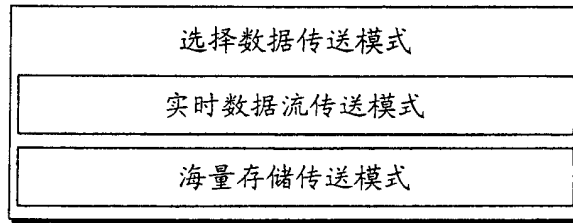 选择数据传送模式
实时数据流传送模式
海量存储传送模式